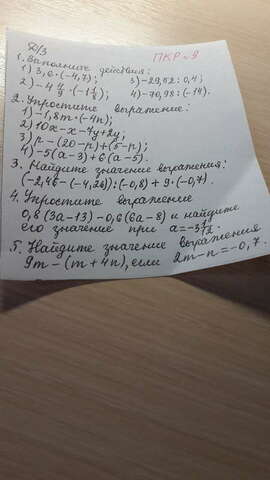 Д/З
ПКР №9
1. Заполните действия:
1) 3,6·(-4,7); 3) -29,52:0,4;
2) -4 4/9·(-1 1/8); 4) -70,98:(-14).
2. Упростите выражение:
1) -1,8m·(-4n);
2) 10x-x-4y+2y;
3) p-(20-p)+(5-p);
4) -5(a-3)+6(a-5).
3. Найдите значение выражения:
(-2,46-(-4,26)):(-0,8)+9·(-0,7).
4. Упростите выражение
0,8(3a-13)-0,6(6a-8) и найдите
его значение при a=-3 1/2.
5. Найдите значение выражения
9m-(m+4n), если 2m-n=-0,7.